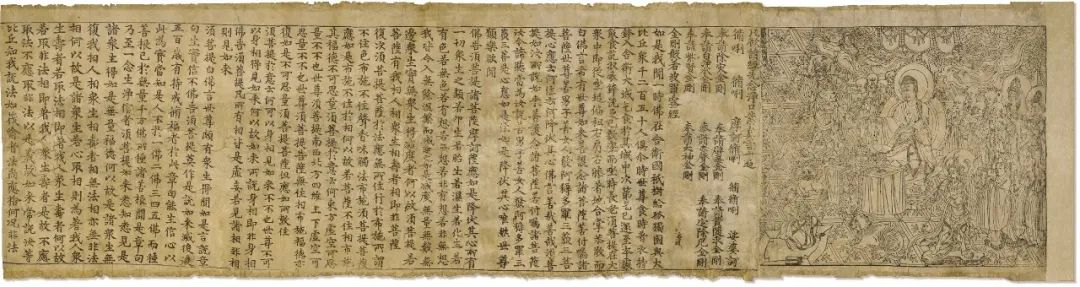 脩唎 脩唎 摩訶脩唎 脩脩唎 娑婆訶
奉請除災金剛 奉請辟毒金剛
金剛般若波羅蜜經
如是我聞一時佛在舍衛國祇樹給孤獨園與大
比丘眾千二百五十人俱尒時世尊食時著衣持
鉢入舍衛大城乞食於其城中次第乞已還至本處
飯食訖收衣鉢洗足已敷座而坐時長老須菩提在大
眾中即從座起偏袒右肩右膝著地合掌恭敬而
白佛言希有世尊如來善護念諸菩薩善付囑諸
菩薩世尊善男子善女人發阿耨多羅三藐三菩
提心應云何住云何降伏其心佛言善哉善哉須菩
提如汝所說如來善護念諸菩薩善付囑諸菩薩
汝今諦聽當為汝說善男子善女人發阿耨多羅三
藐三菩提心應如是住如是降伏其心唯然世尊
願樂欲聞
佛告須菩提諸菩薩摩訶薩應如是降伏其心所有
一切眾生之類若卵生若胎生若濕生若化生若
有色若無色若有想若無想若非有想非無想
我皆令入無餘涅槃而滅度之如是滅度無量無數無
邊眾生實無眾生得滅度者何以故須菩提若
菩薩有我相人相眾生相壽者相即非菩薩
復次須菩提菩薩於法應無所住行於布施所謂
不住色布施不住聲香味觸法布施須菩提菩薩
應如是布施不住於相何以故若菩薩不住相布施
其福德不可思量須菩提於意云何東方虛空可思
量不不也世尊須菩提南西北方四維上下虛空可
思量不不也世尊須菩提菩薩無住相布施福德亦
復如是不可思量須菩提菩薩但應如所教住
須菩提於意云何可以身相見如來不不也世尊不可
以身相得見如來何以故如來所說身相即非身相
佛告須菩提凡所有相皆是虛妄若見諸相非相
則見如來
須菩提白佛言世尊頗有眾生得聞如是言說章句
生實信不佛告須菩提莫作是說如來滅後後
五百歲有持戒修福者於此章句能生信心以
此為實當知是人不於一佛二佛三四五佛而種
善根已於無量千萬佛所種諸善根聞是章句
乃至一念生淨信者須菩提如來悉知悉見是
諸眾生得如是無量福德何以故是諸眾生無
復我相人相眾生相壽者相無法相亦無非法
相何以故是諸眾生若心取相則為著我人眾
生壽者若取法相即著我人眾生壽者何以故
若取非法相即著我人眾生壽者是故不應
取法不應取非法以是義故如來常說汝等
比丘知我說法如筏喻者法尚應捨何況非法